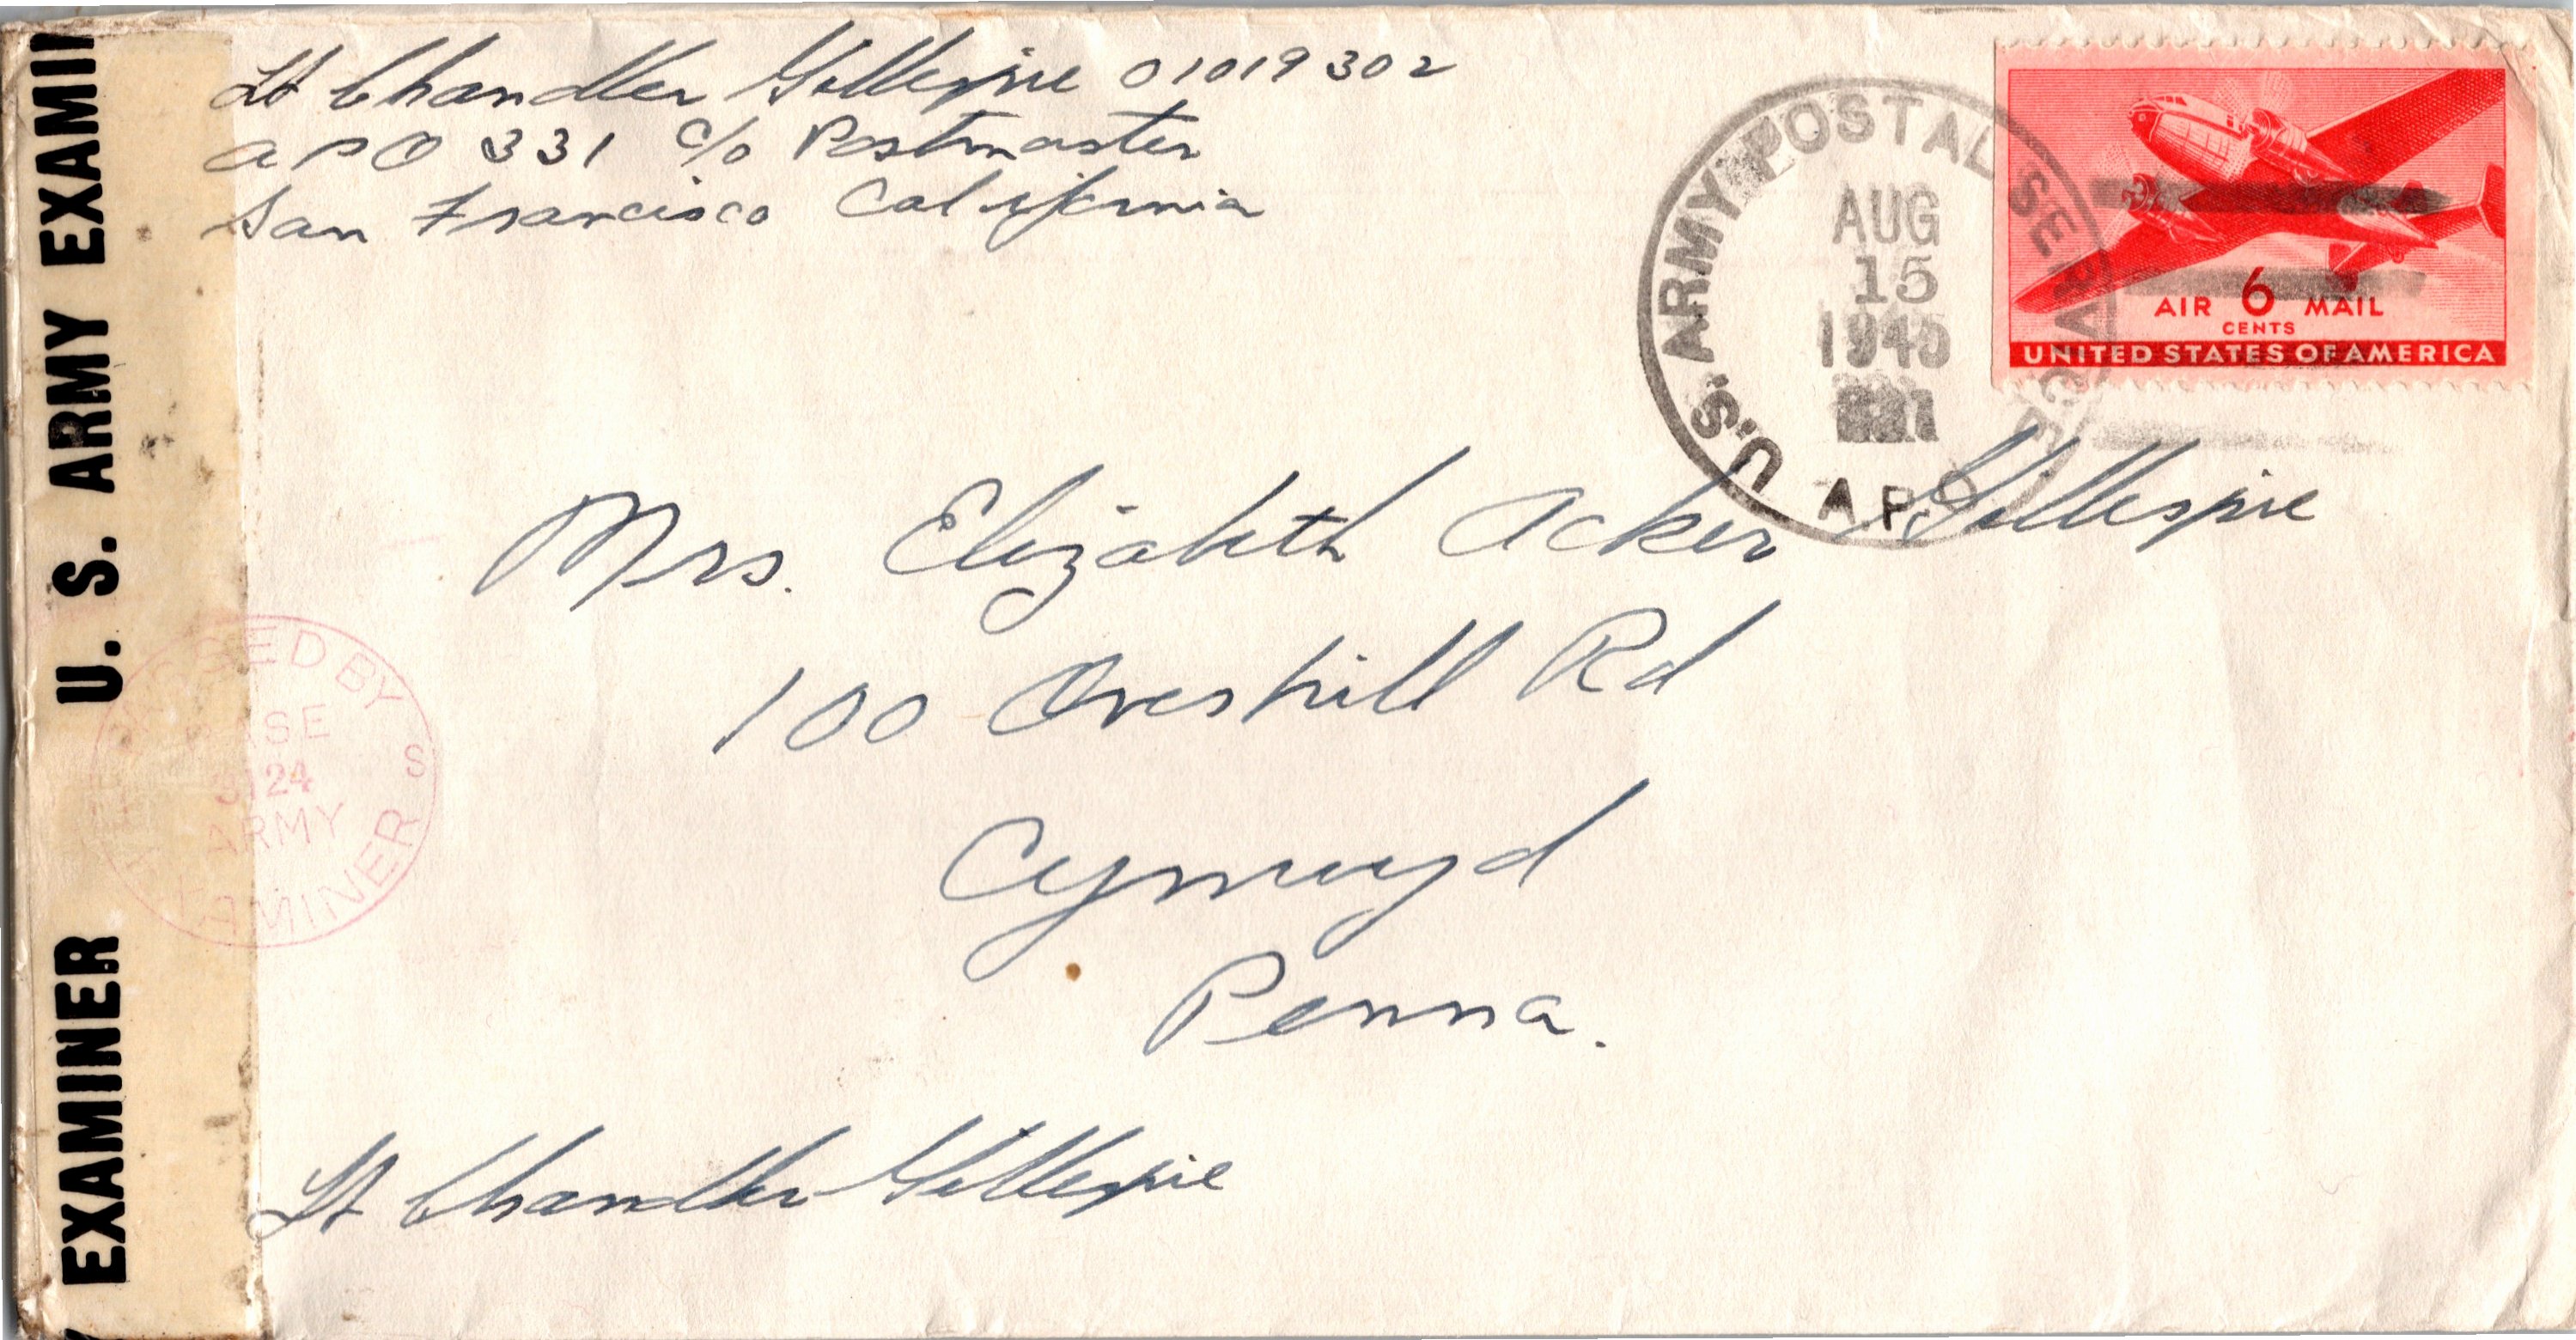 Lt Chandler Gillespie 01019302
APO 331 c/o Postmaster
San Francisco California
U.S. ARMY POSTAL SERVICE
AUG
15
1945
331
A.P.O.
AIR 6 MAIL
CENTS
UNITED STATES OF AMERICA
Mrs. Elizabeth Acker Gillespie
100 Overhill Rd
Cynwyd
Penna.
Lt Chandler Gillespie
EXAMINER U. S. ARMY EXAMI
BY
BASE
ARMY
EXAMINER
S